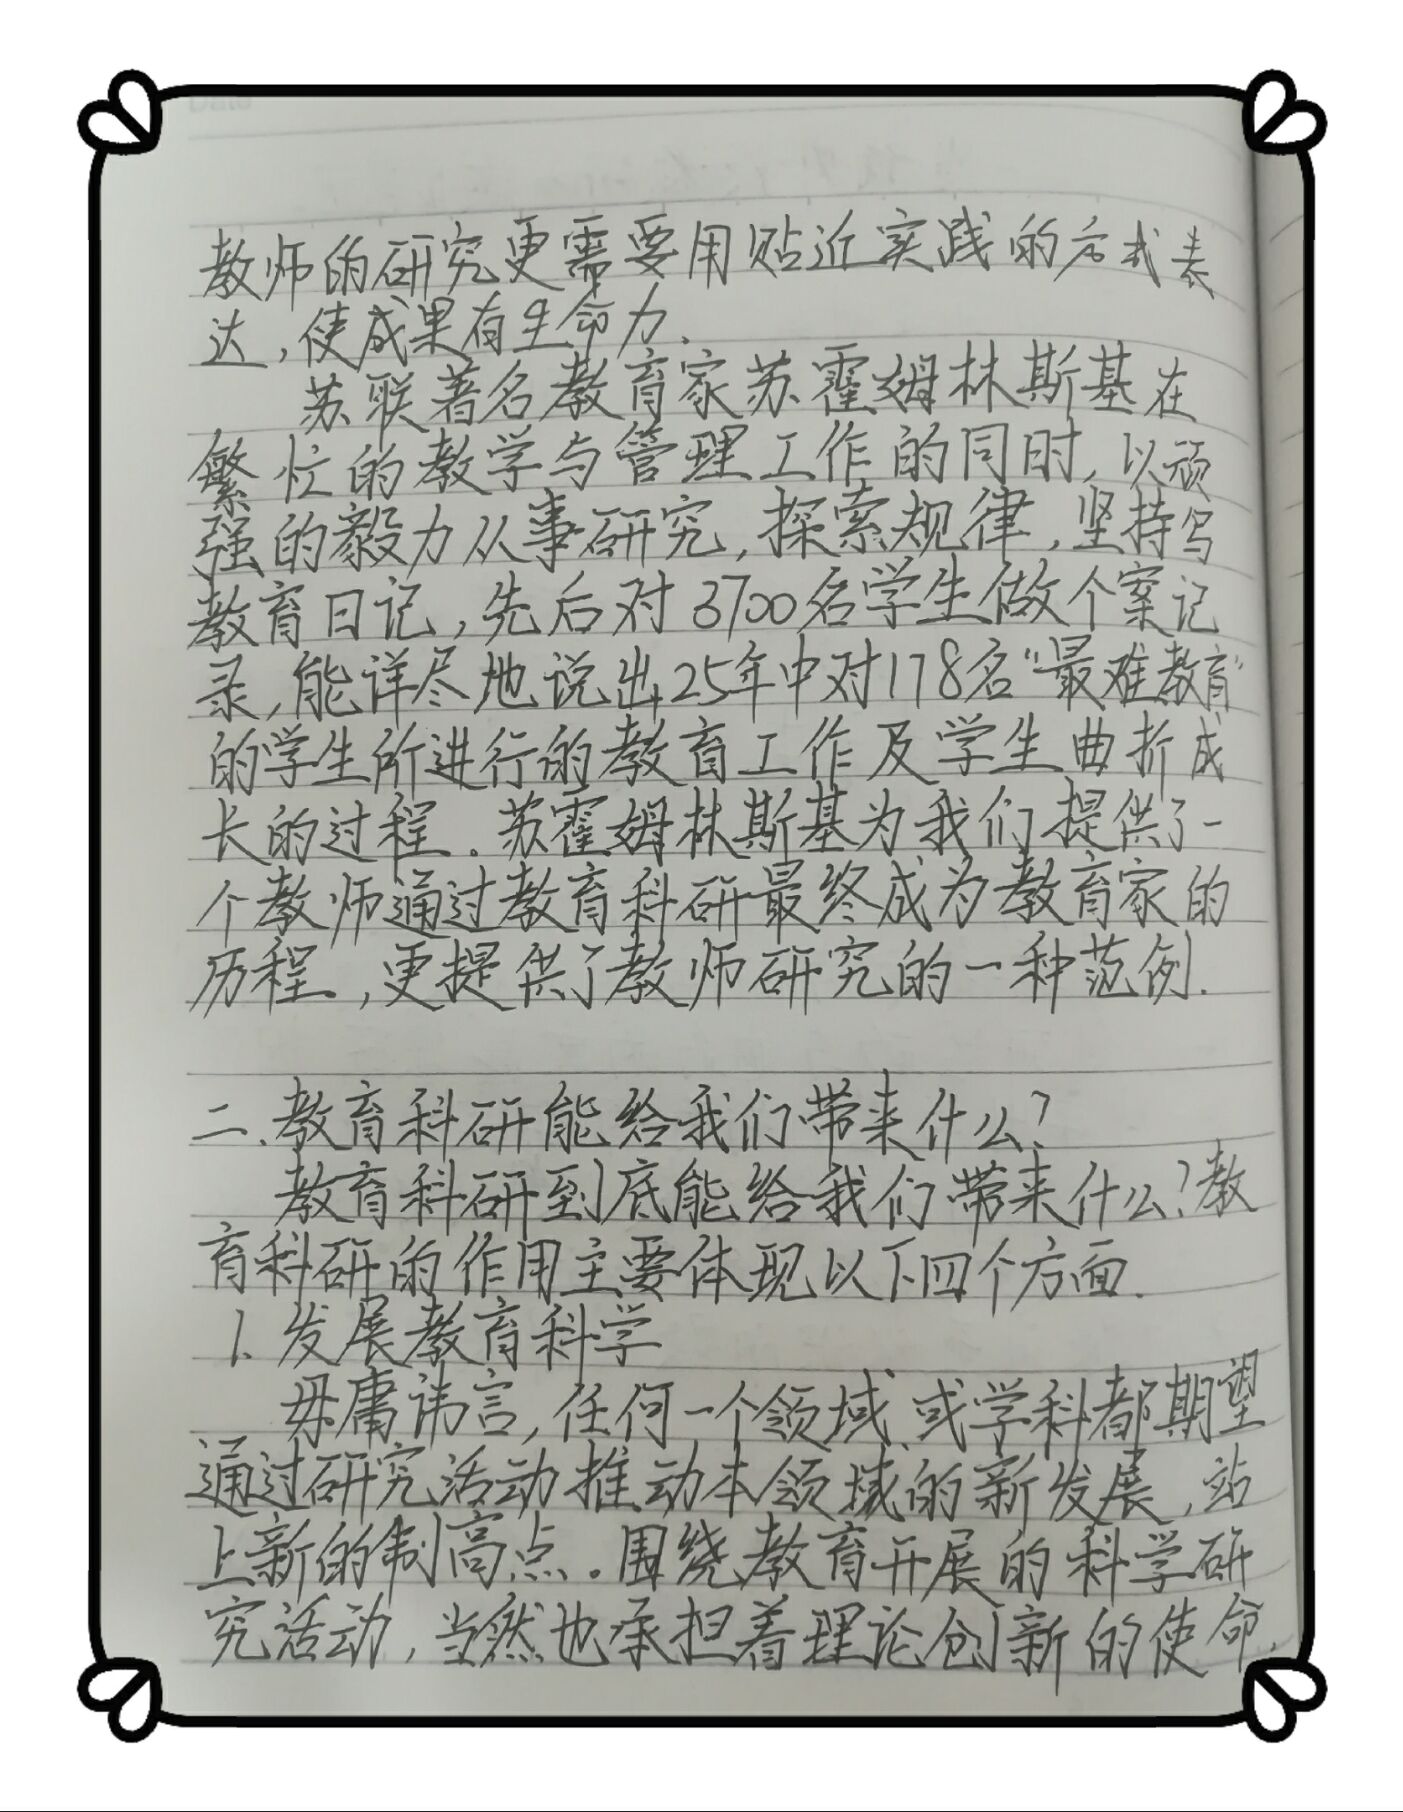 Date
教师的研究更需要用贴近实践的方式表
达,使成果有生命力.
苏联著名教育家苏霍姆林斯基在
繁忙的教学与管理工作的同时,以顽
强的毅力从事研究,探索规律,坚持写
教育日记,先后对3700名学生做个案记
录,能详尽地说出25年中对178名“最难教育”
的学生所进行的教育工作及学生曲折成
长的过程.苏霍姆林斯基为我们提供了一
个教师通过教育科研最终成为教育家的
历程,更提供了教师研究的一种范例.
二、教育科研能给我们带来什么?
教育科研到底能给我们带来什么?教
育科研的作用主要体现以下四个方面.
1.发展教育科学
毋庸讳言,任何一个领域、或学科都期望
通过研究活动推动本领域的新发展,站
上新的制高点.围绕教育开展的科学研
究活动,当然也承担着理论创新的使命.